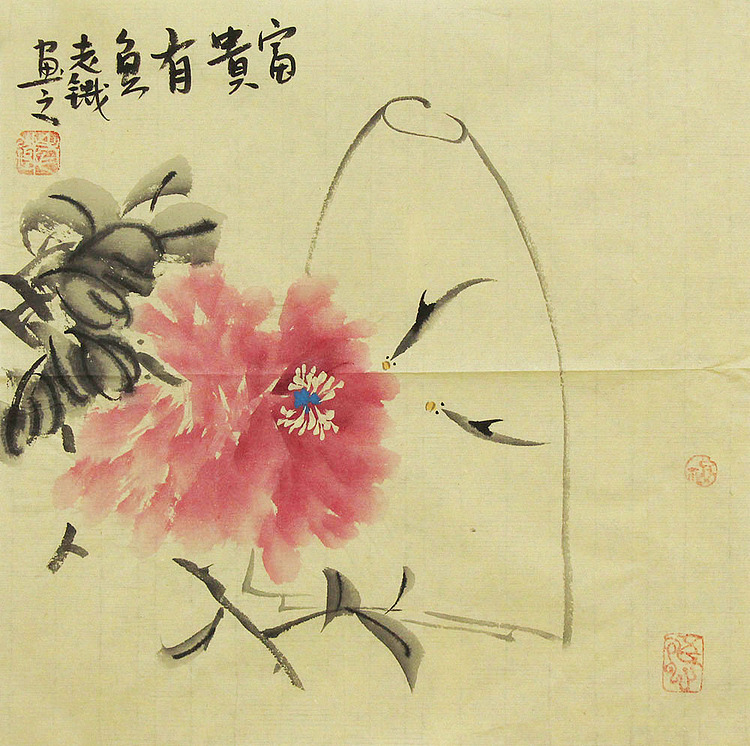 富貴有魚
老鐵
畫之